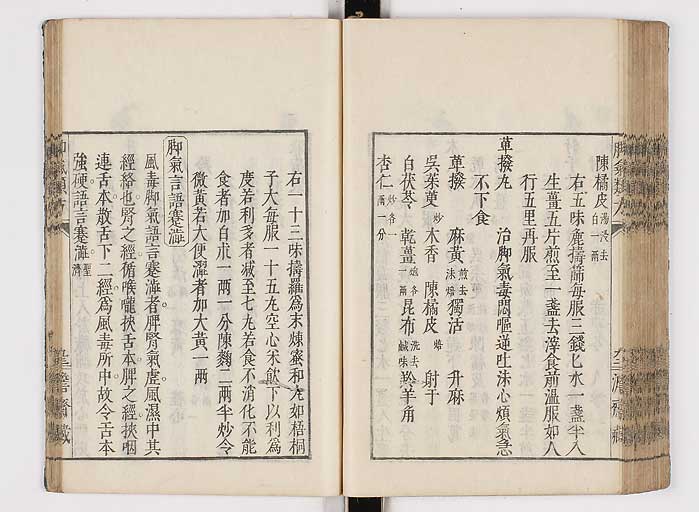 陳橘皮湯浸去白一兩
右五味麁擣篩每服三錢匕水一盞半入
生薑五片煎至一盞去滓食前溫服如人
行五里再服
蓽撥丸　治脚氣毒悶嘔逆吐沫心煩氣急
不下食
蓽撥　麻黄煎去沫焙　獨活　升麻
吳茱萸炒　木香　陳橘皮焙　射干
白茯苓　乾薑炮各一兩　昆布洗去鹹味　羚羊角
杏仁炒各一兩一分
右一十三味擣羅爲末煉蜜和丸如梧桐
子大每服一十五丸空心米飲下以利爲
度若利多者減至七丸若食不消化不能
食者加白朮一兩一分陳麴二兩半炒令
微黄若大便澀者加大黄一兩
脚氣言語蹇澁
風毒脚氣語言蹇澁者脾腎氣虛風濕中其
經絡也腎之經循喉嚨挾舌本脾之經挾咽
連舌本散舌下二經爲風毒所中故令舌本
強硬語言蹇澁聖濟